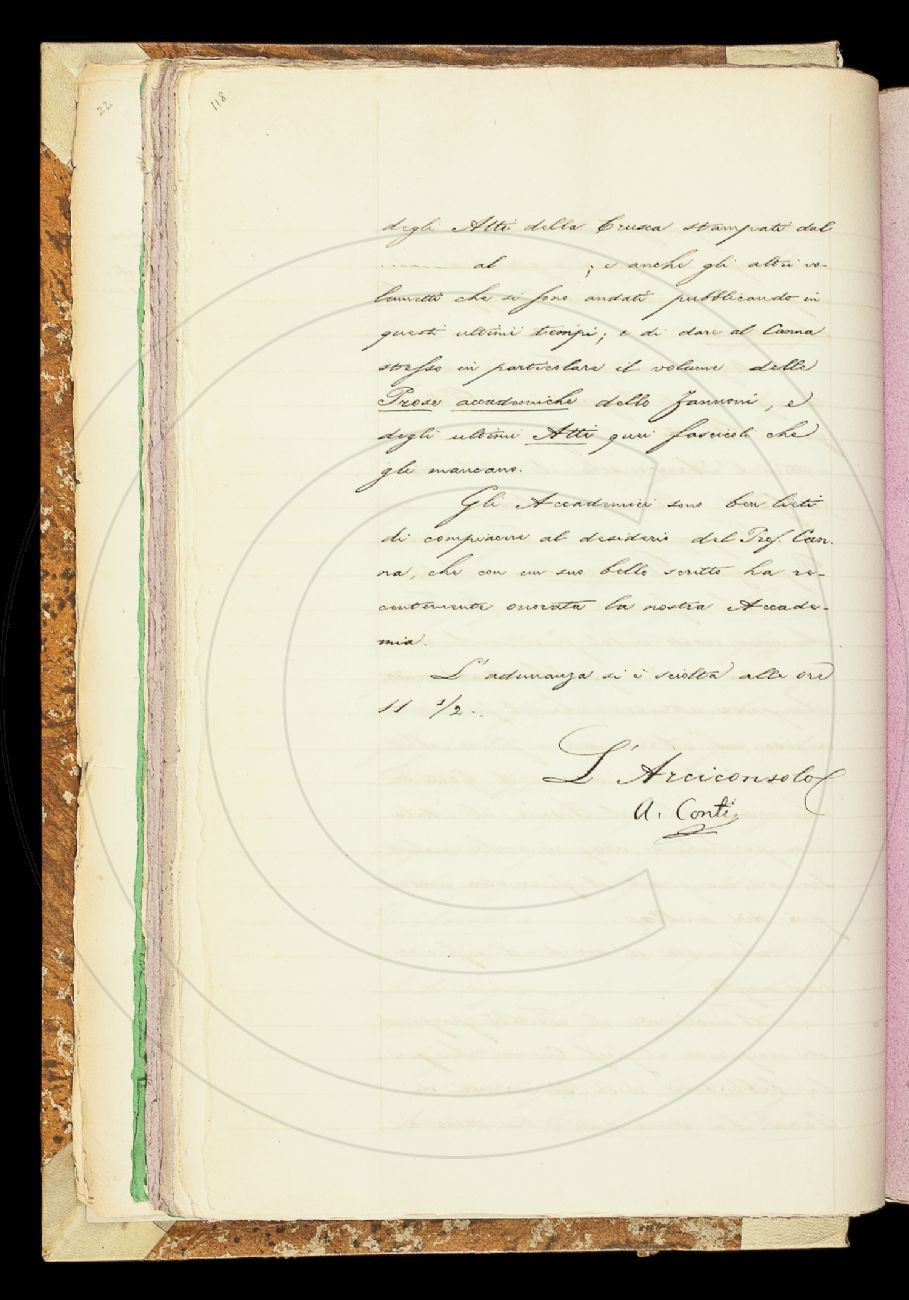 22
118
degli Atti della Crusca stampati dal
........ al ; e anche gli altri vo-
lumetti che si sono andati pubblicando in
questi ultimi tempi; e di dare al Canna
stesso in particolare il volume delle
Prose accademiche dello Zannoni, e
degli ultimi Atti quei fascicoli che
gli mancano.
Gli Accademici sono ben lieti
di compiacere al desiderio del Prof. Can-
na, che con un suo bello scritto ha re-
centemente onorata la nostra Accade-
mia.
L'adunanza si è sciolta alle ore
11 1/2.
L'Arciconsolo
A. Conti